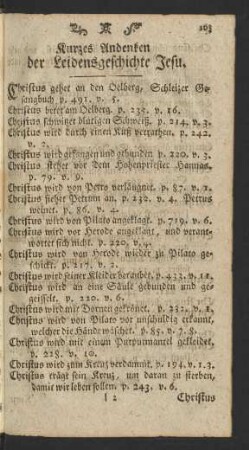 163
Kurzes Andenken
der Leidensgeschichte Jesu.
Christus gehet an den Oelberg, Schleizer Ge-
sangbuch p. 491. v. 5.
Christus betet am Oelberg. p. 235. v. 16.
Christus schwitzet blutigen Schweiß. p. 214. v. 3.
Christus wird durch einen Kuß verrathen. p. 242.
v. 2.
Christus wird gefangen und gebunden p. 220. v. 3.
Christus stehet vor dem Hohenpriester Hannas.
p. 79. v. 9.
Christus wird von Petro verläugnet. p. 87. v. 1.
Christus siehet Petrum an. p. 232. v. 4. Petrus
weinet. p. 86. v. 4.
Christus wird von Pilato angeklagt. p. 719. v. 6.
Christus wird vor Herode angeklagt, und verant-
wortet sich nicht. p. 220. v. 4.
Christus wird von Herode wieder zu Pilato ge-
schickt. p. 217. v. 2.
Christus wird seiner Kleider beraubet. p. 433. v. 11.
Christus wird an eine Säule gebunden und ge-
geißelt. p. 220. v. 6.
Christus wird mit Dornen gekrönet. p. 232. v. 1.
Christus wird von Pilato vor unschuldig erkannt,
welcher die Hände wäschet. p. 85. v. 7. 8.
Christus wird mit einem Purpurmantel gekleidet.
p. 225. v. 10.
Christus wird zum Kreuz verdammt. p. 194. v. 1. 3.
Christus trägt sein Kreuz, um daran zu sterben,
damit wir leben sollen. p. 243. v. 6.
l 2 Christus